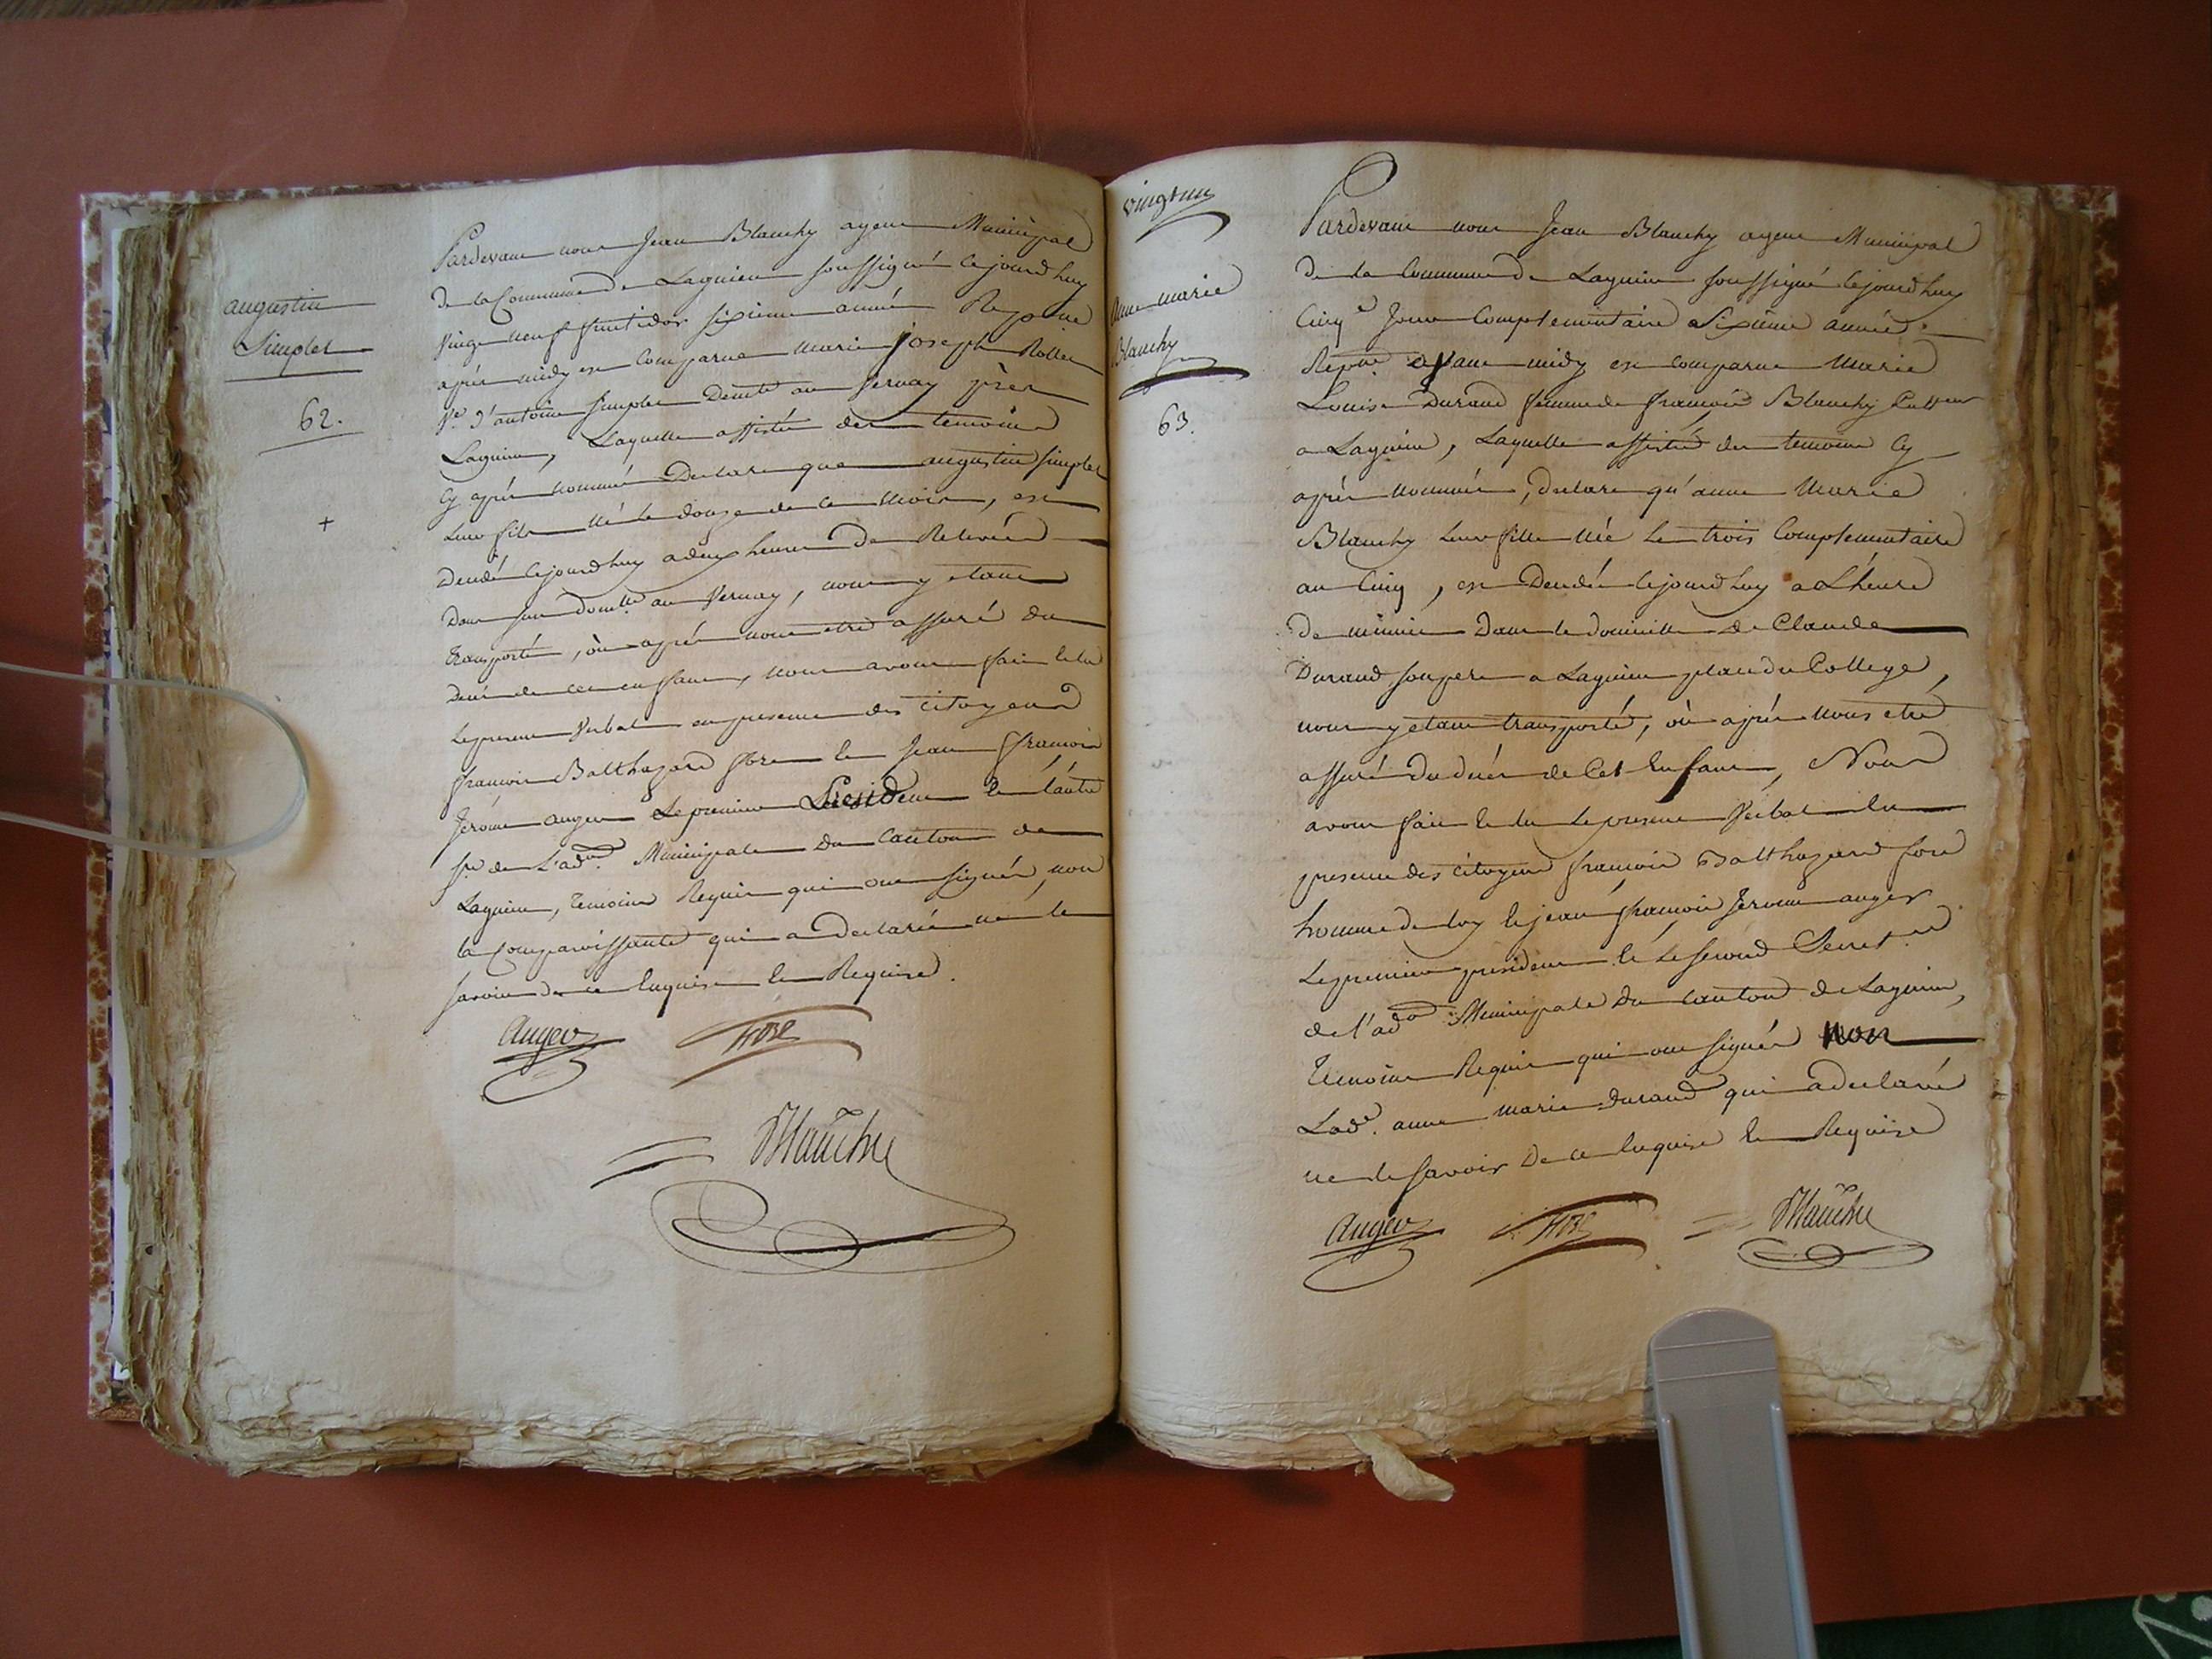 augustin
Simplet
62.
+
Pardevant nous Jean Blanchy agent Municipal
de la Commune de Lagnieu soussigné cejourdhuy
vingt neuf fructidor sixieme année Repne
après midy est Comparue marie joseph Rollet
fe d'antoine simplet Demte au Vernay près
Lagnieu, Laquelle assistée des temoins
Cy après nommés Declare que augustin simplet
leur fils né le douze de ce mois, est
Decédé cejourdhuy a deux heures De Relevée
Dans son domlle au Vernay, nous y etant
transporté, où après nous etre assuré du
Decés de cet enfant, nous avons fait et lu
Le present Verbal en presence des Citoyens
françois Balthazard fore et Jean françois
Jerome auger Le premier President et l'autre
sre de L'adon Municipale Du Canton de
Lagnieu, temoins Requis qui ont signés non
la Comparoissante qui a declarée ne le
savoir de ce Enquise et Requise.
Auger fore
Blanchy
vingt un
Anne marie
Blanchy
63.
Pardevant nous Jean Blanchy agent Municipal
de la Commune de Lagnieu soussigné cejourdhuy
Cinqe Jour Complementaire Sixieme année
Repne avant midy est comparue Marie
Louise Durand femme de françois Blanchy Cultteur
a Lagnieu, Laquelle assistée des temoins Cy
après nommés, declare qu'anne Marie
Blanchy leur fille née le trois Complementaire
an Cinq, est Decedée cejourdhuy a L'heure
De minuit Dans le domicille de Claude
Durand son pere a Lagnieu place du College,
nous y etant transporté, où après nous etre
assuré du decés de Cet Enfant, Nous
avons fait et lu le present Verbal en
presence des Citoyens françois Balthazard fore
homme de loy et jean françois Jerome auger
Le premier president et Le second Secret.re
de l'adon Municipale du Canton de Lagnieu,
Temoins Requis qui ont signés non
Lade. anne marie durand qui a declaré
ne le savoir De ce Enquise et Requise
Auger fore Blanchy